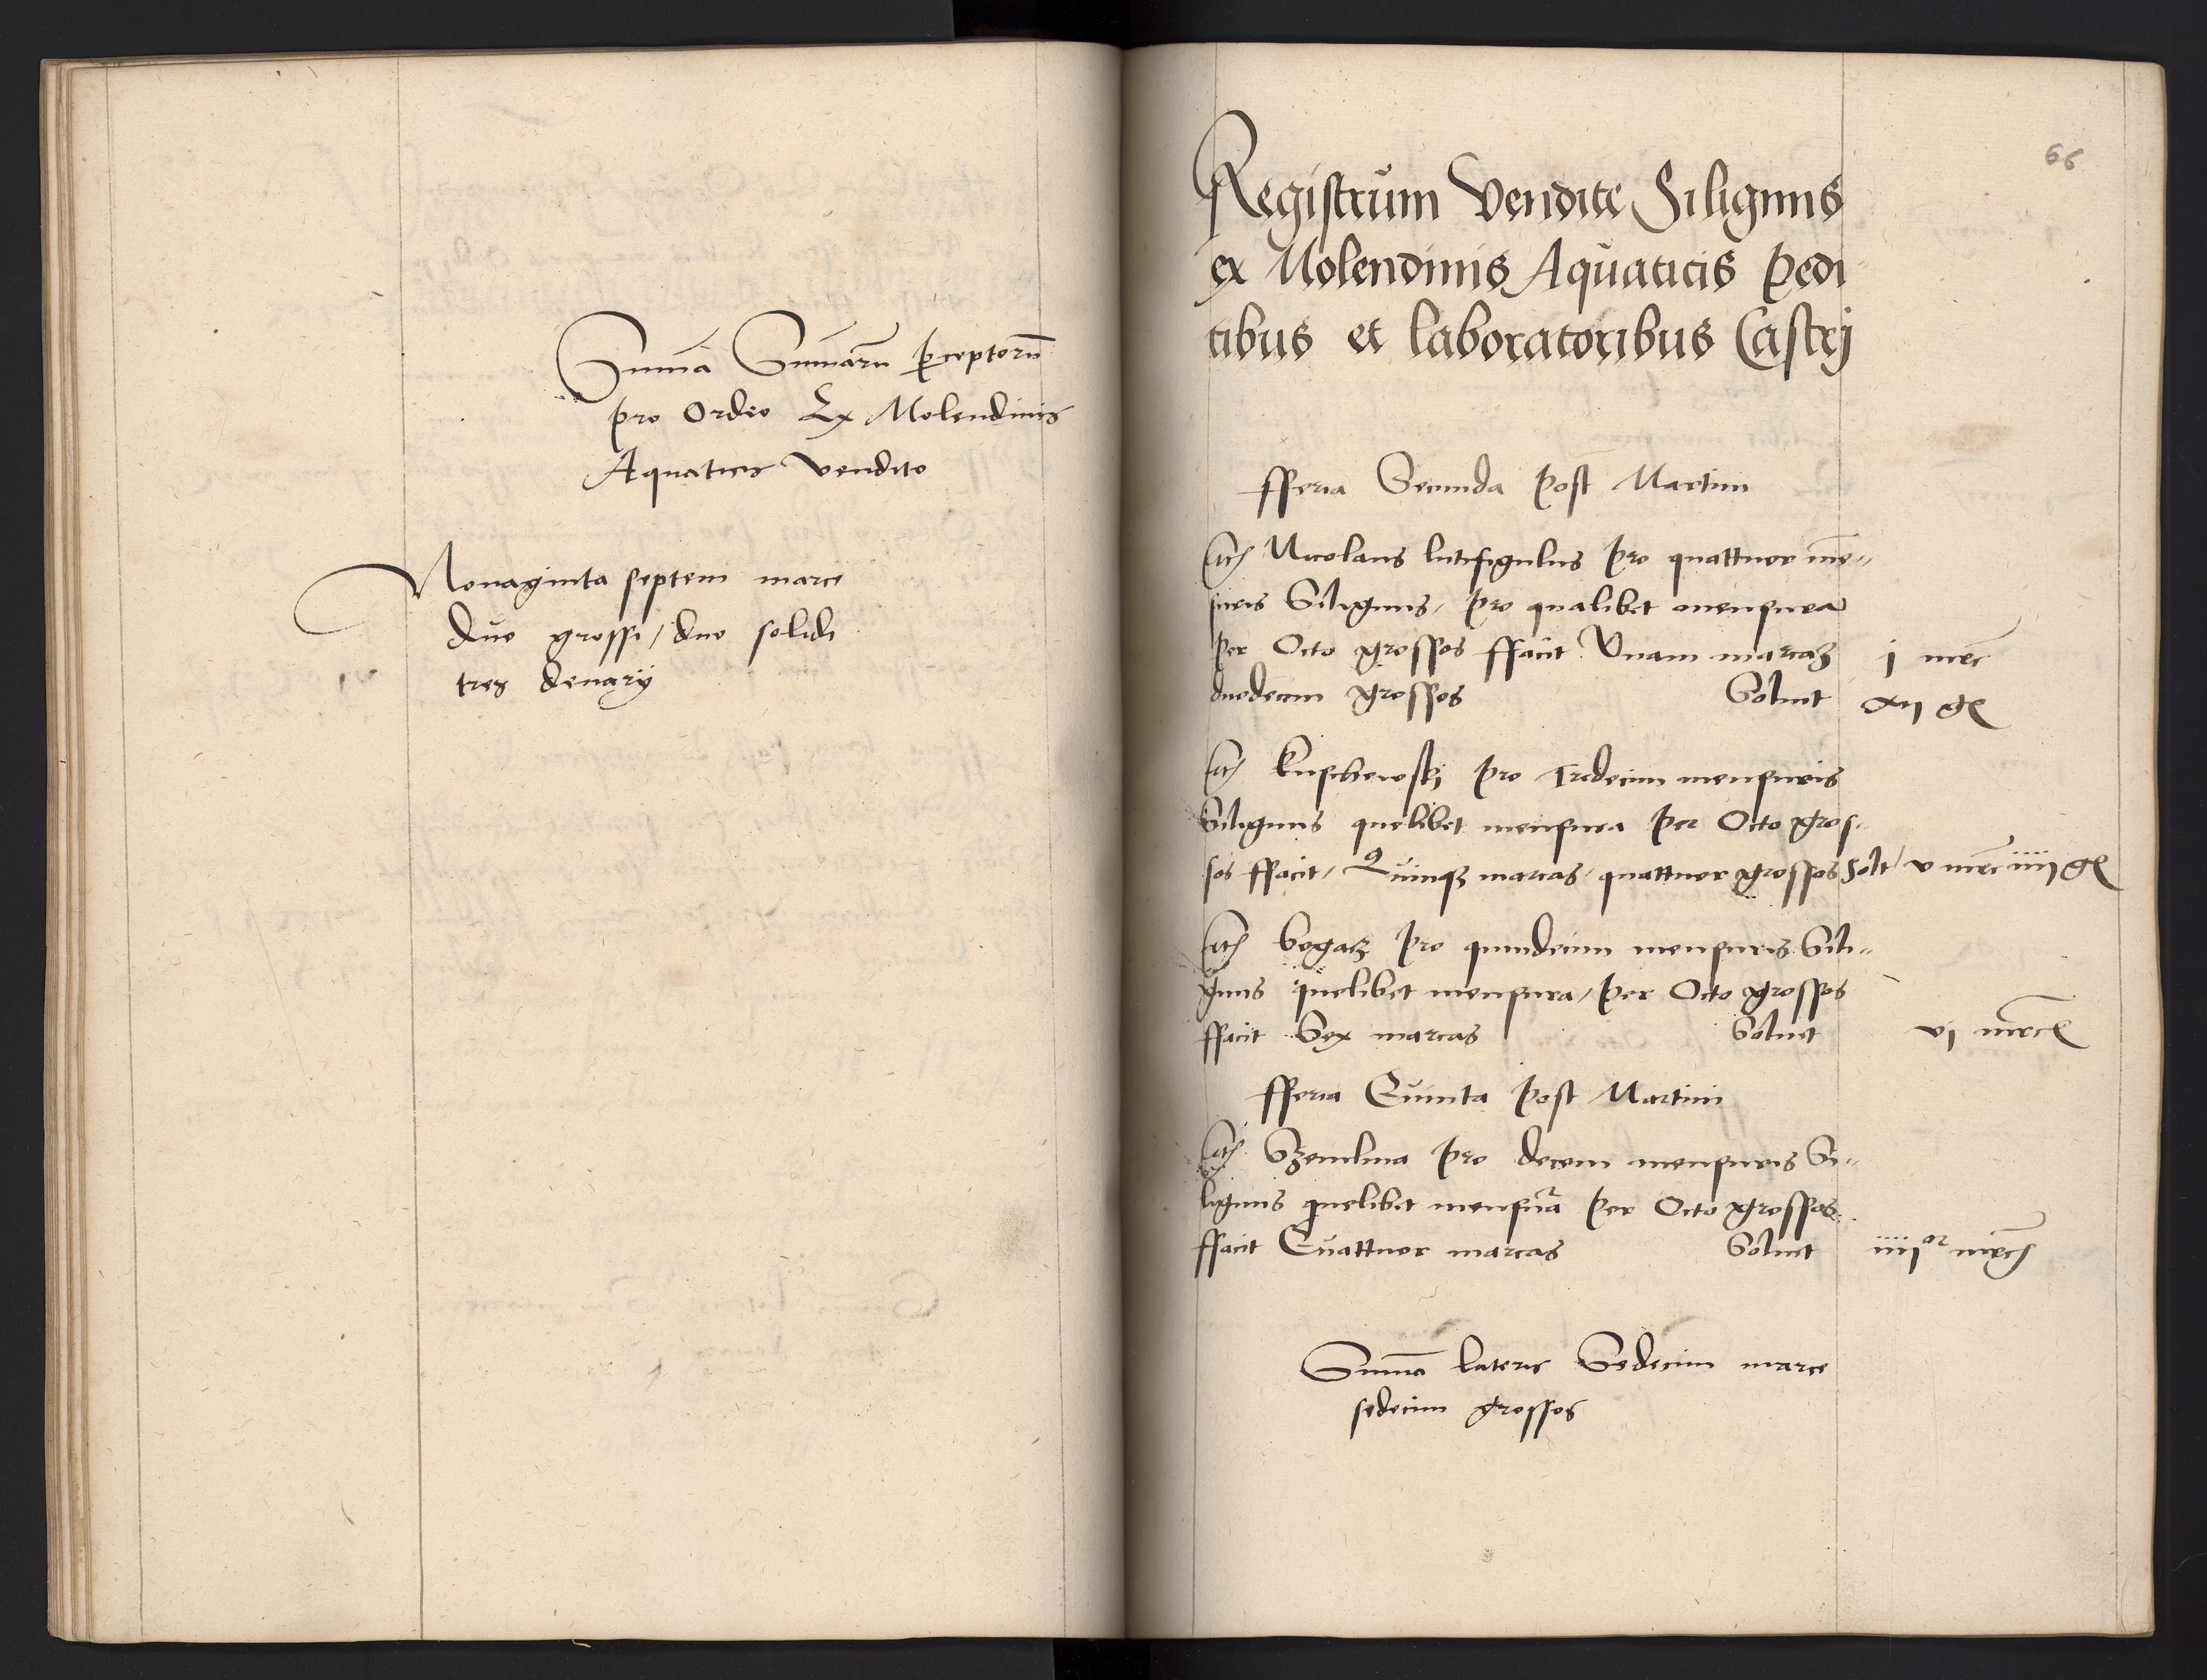 Summa Summaru perceptoru
pro Ordeo Ex Molendinis
Aquaticis vendito
Nonaginta septem marce
duo grossi / duo solidi
tres denarij
66
Registrum Vendite Siliginis
ex Molendinis Aquaticis Pedi
tibus et laboratoribus Castrj
fferia Secunda post Martini
Ite Nicolaus lutifigulus pro quattuor me=
suris Siliginis / pro qualibet mensura
per Octo grossos ffacit Vnam marcaz j mrc
duodecim grossos Soluit xij gr
Ite Kuschewskj pro Tredecim mensuris
Siliginis quelibet mensura per Octo gros=
sos ffacit / Quinqz marcas / quattuor grossos Solt / v mrc iiij gr
Ite Bogacz pro quindecim mensuris Sili=
ginis quelibet mensura / per Octo grossos
ffacit Sex marcas Soluit vj mrc
fferia Quinta post Martini
Ite Szemlina pro decem mensuris Si=
liginis quelibet mensura per Octo grossos
ffacit Quattuor marcas Soluit iiij or mrc
Summa lateris Sedecim marce
sedecim grossos